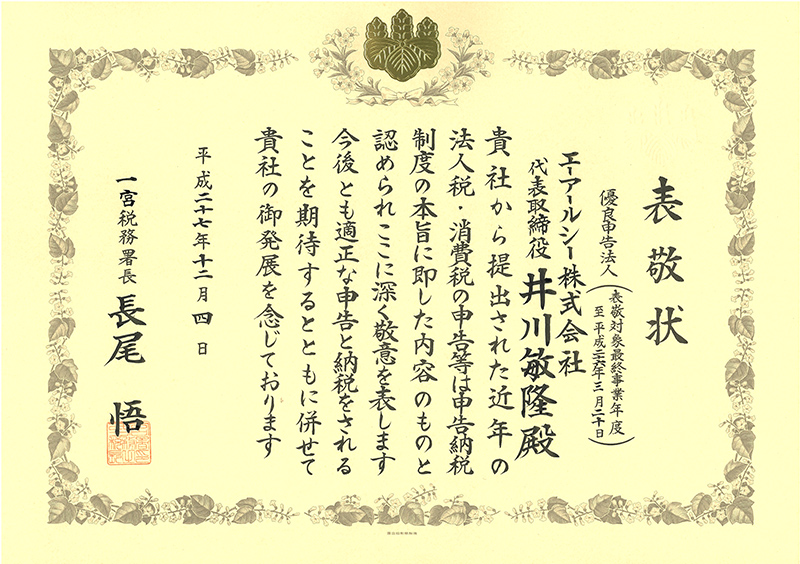 表敬状
優良申告法人
(表敬対象最終事業年度
至平成二六年三月二十日)
エーアールシー株式会社
代表取締役 井川敏隆殿
貴社から提出された近年の
法人税・消費税の申告等は申告納税
制度の本旨に即した内容のものと
認められここに深く敬意を表します
今後とも適正な申告と納税をされる
ことを期待するとともに併せて
貴社の御発展を念じております
平成二十七年十二月四日
一宮税務署長 長尾悟